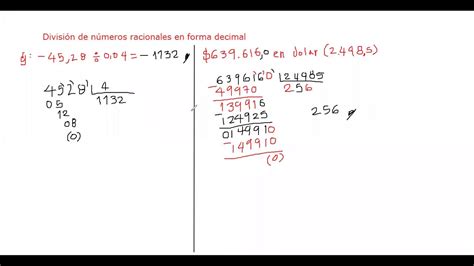 División de números racionales en forma decimal
ej: -45,28 ÷ 0,04 = -1132,
4528 4
05 1132
12
08
(0)
$639.616,0 en dolar (2.498,5)
6396160 24985
-49970 256
139916
-124925
0149910
-149910
(0)
256,